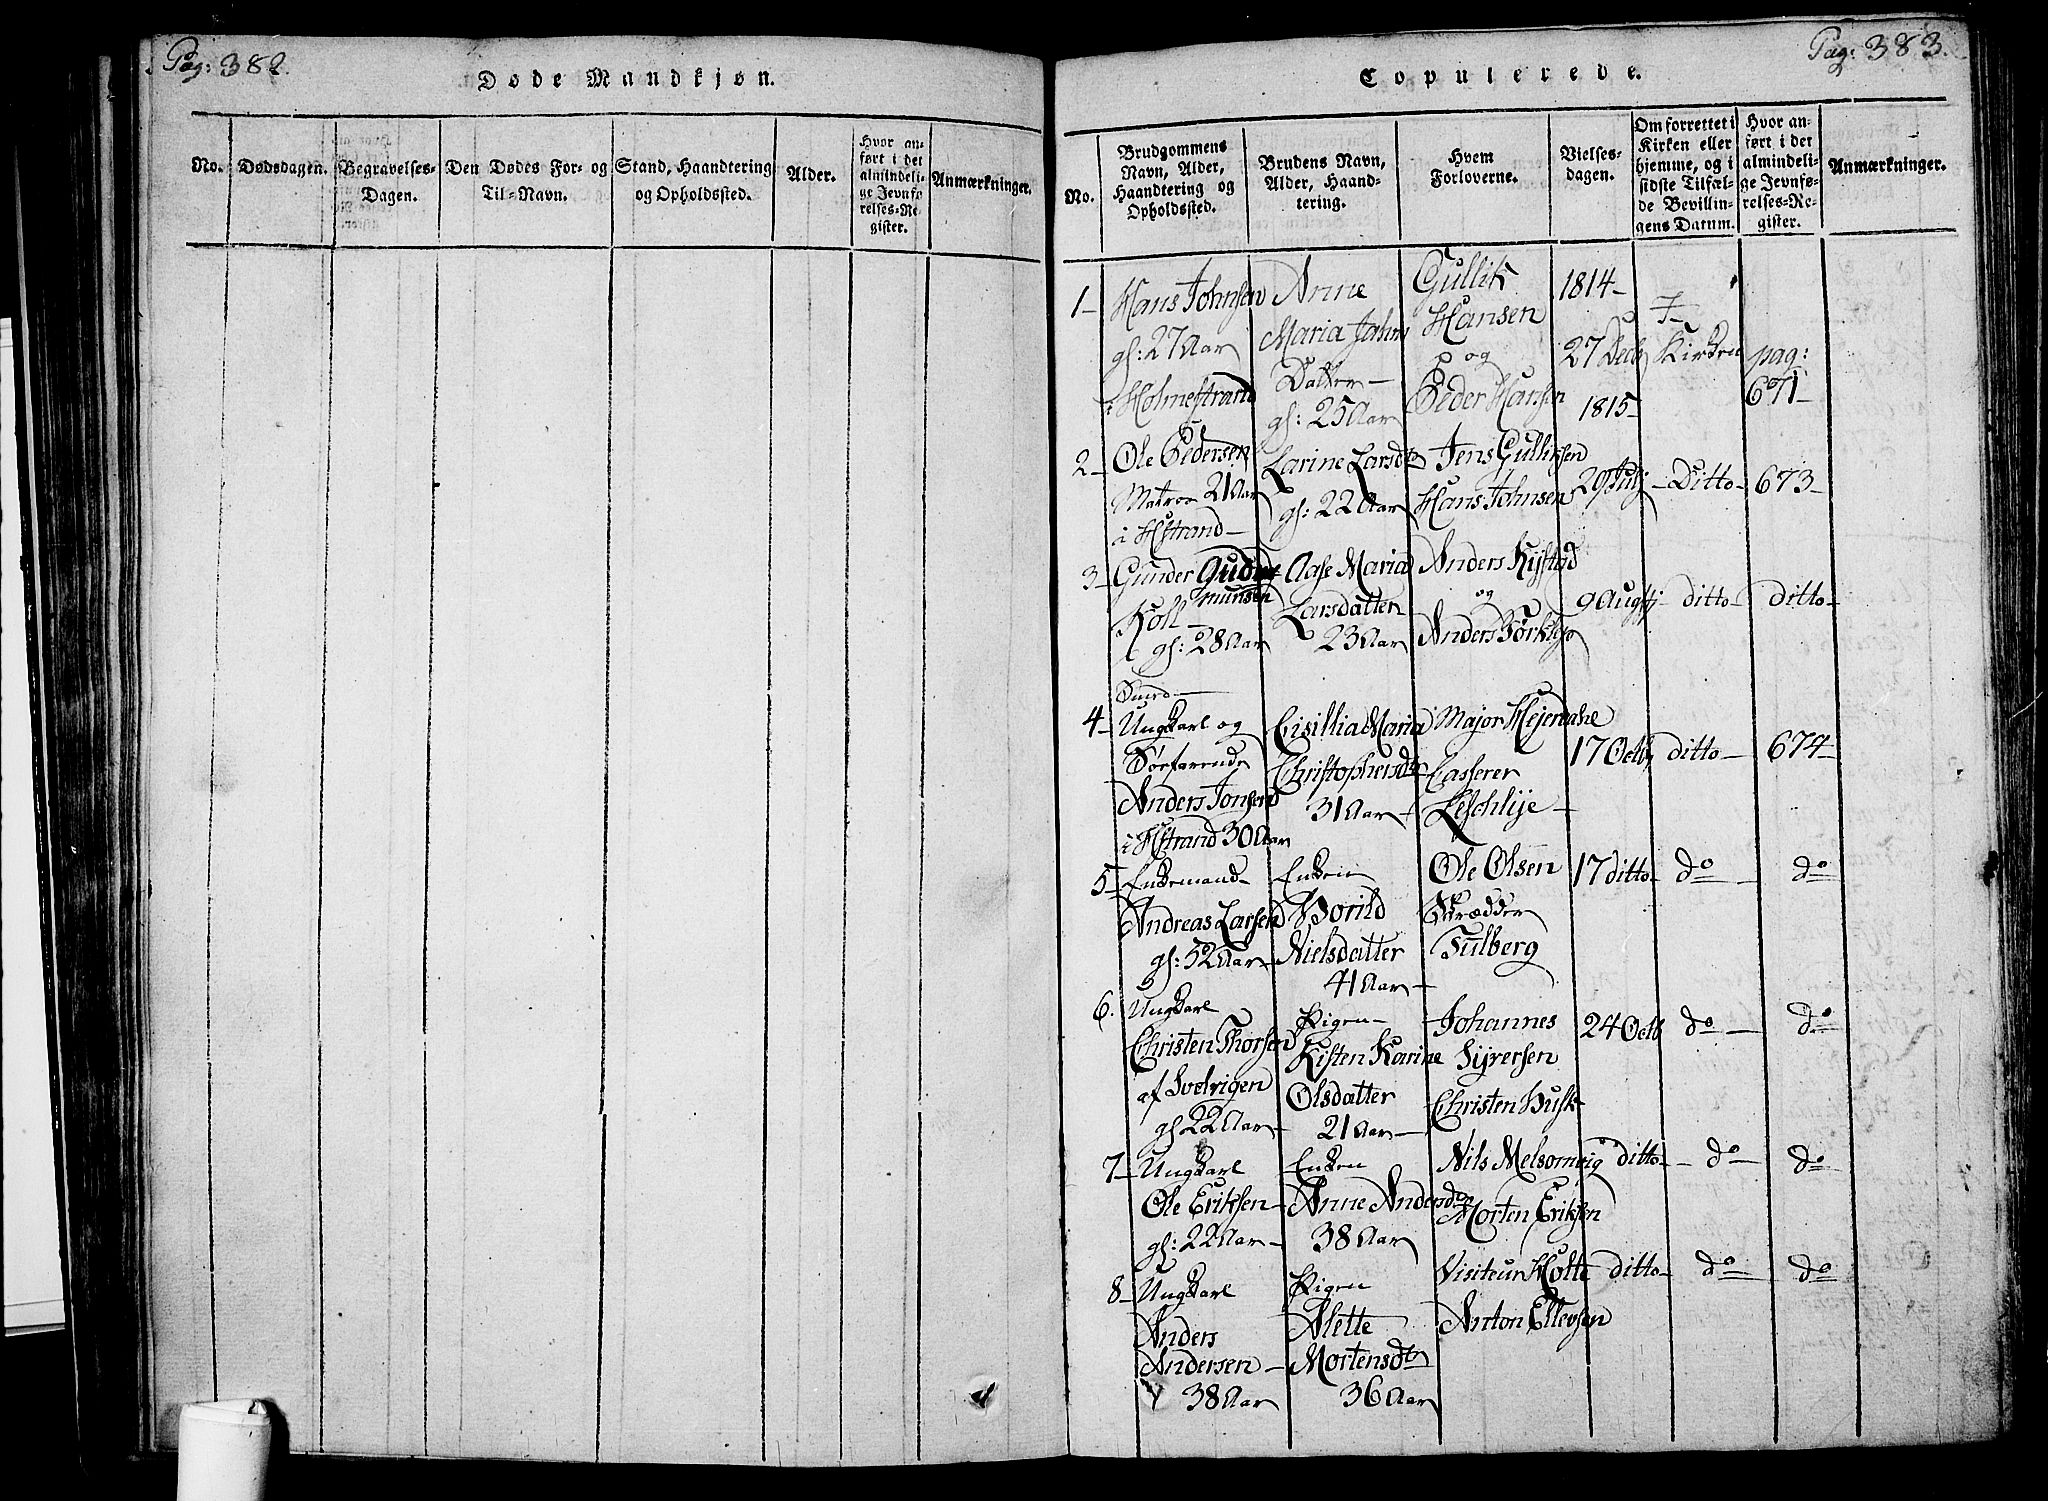 Pag: 382.
Døde Mandkjøn.
No.
Dødsdagen.
Begravelses-
Dagen.
Den Dødes For- og
Til-Navn.
Stand, Haandtering
og Opholdssted.
Alder.
Hvor an-
ført i det
almindeli-
ge Jevnfø-
relses-Re-
gister.
Anmærkninger.
Pag: 383.
Copulerede.
No.
Brudgommens
Navn, Alder,
Haandtering og
Opholdssted.
Brudens Navn,
Alder, Haand-
tering.
Hvem
Forloverne.
Vielses-
dagen.
Om forrettet i
Kirken eller
hjemme, og i
sidste Tilfæl-
de Bevillin-
gens Datum.
Hvor an-
ført i det
almindeli-
ge Jevnfø-
relses-Re-
gister.
Anmærkninger.
1-
Hans Johnsen
gl: 27 Aar
i Holmestrand
Anne
Maria Jahn
Datter-
gl: 25 Aar
Gullik
Hansen
og
Peder Hansen
1814-
27 Decb
1815-
I
Kirken
pag:
671-
2-
Ole Pedersen
Matros 21 Aar
i Hstrand-
Larine Larsdtr
gl: 22 Aar
Jens Gulliksen
Hans Johnsen
29 Julj
-Ditto-
673-
3-
Gunder Gud-
munsen
Koll-
gl: 28 Aar
Aase Maria
Larsdatter
23 Aar
Anders Kijstad
og
Anders
9 Augstj
ditto-
ditto-
4-
Ungkarl og
Søefarende
Anders Jonsen
i Hstrand 30 Aar
Cisillia Maria
Christophersdtr
31 Aar-
Major Hejerdahl
Casserer
Leschlije-
17 Octb
ditto-
674-
5-
Enkemand-
Andreas Larsen
gl: 52 Aar-
Enken
Horild
Nielsdatter
41 Aar-
Ole Olsen
Skrædder
Fulberg
17 ditto-
do-
do
6.
Ungkarl
Christen Thorsen
af Svedrigen
gl 22 Aar-
Pigen-
Kisten Karine
Olsdatter
21 Aar-
Johannes
Syversen
Christen Husk
24 Octb
do-
do
7-
Ungkarl
Ole Eriksen-
gl: 22 Aar-
Enken
Anne Andersdtr
38 Aar
Nils Melsomvig
Morten Eriksen
ditto-
-do-
do
8-
Ungkarl
Anders
Andersen-
38 Aar
Pigen
Alette
Mortensdtr
36 Aar
Visiteur Holte
Anton Ellevsen
ditto-
do-
do